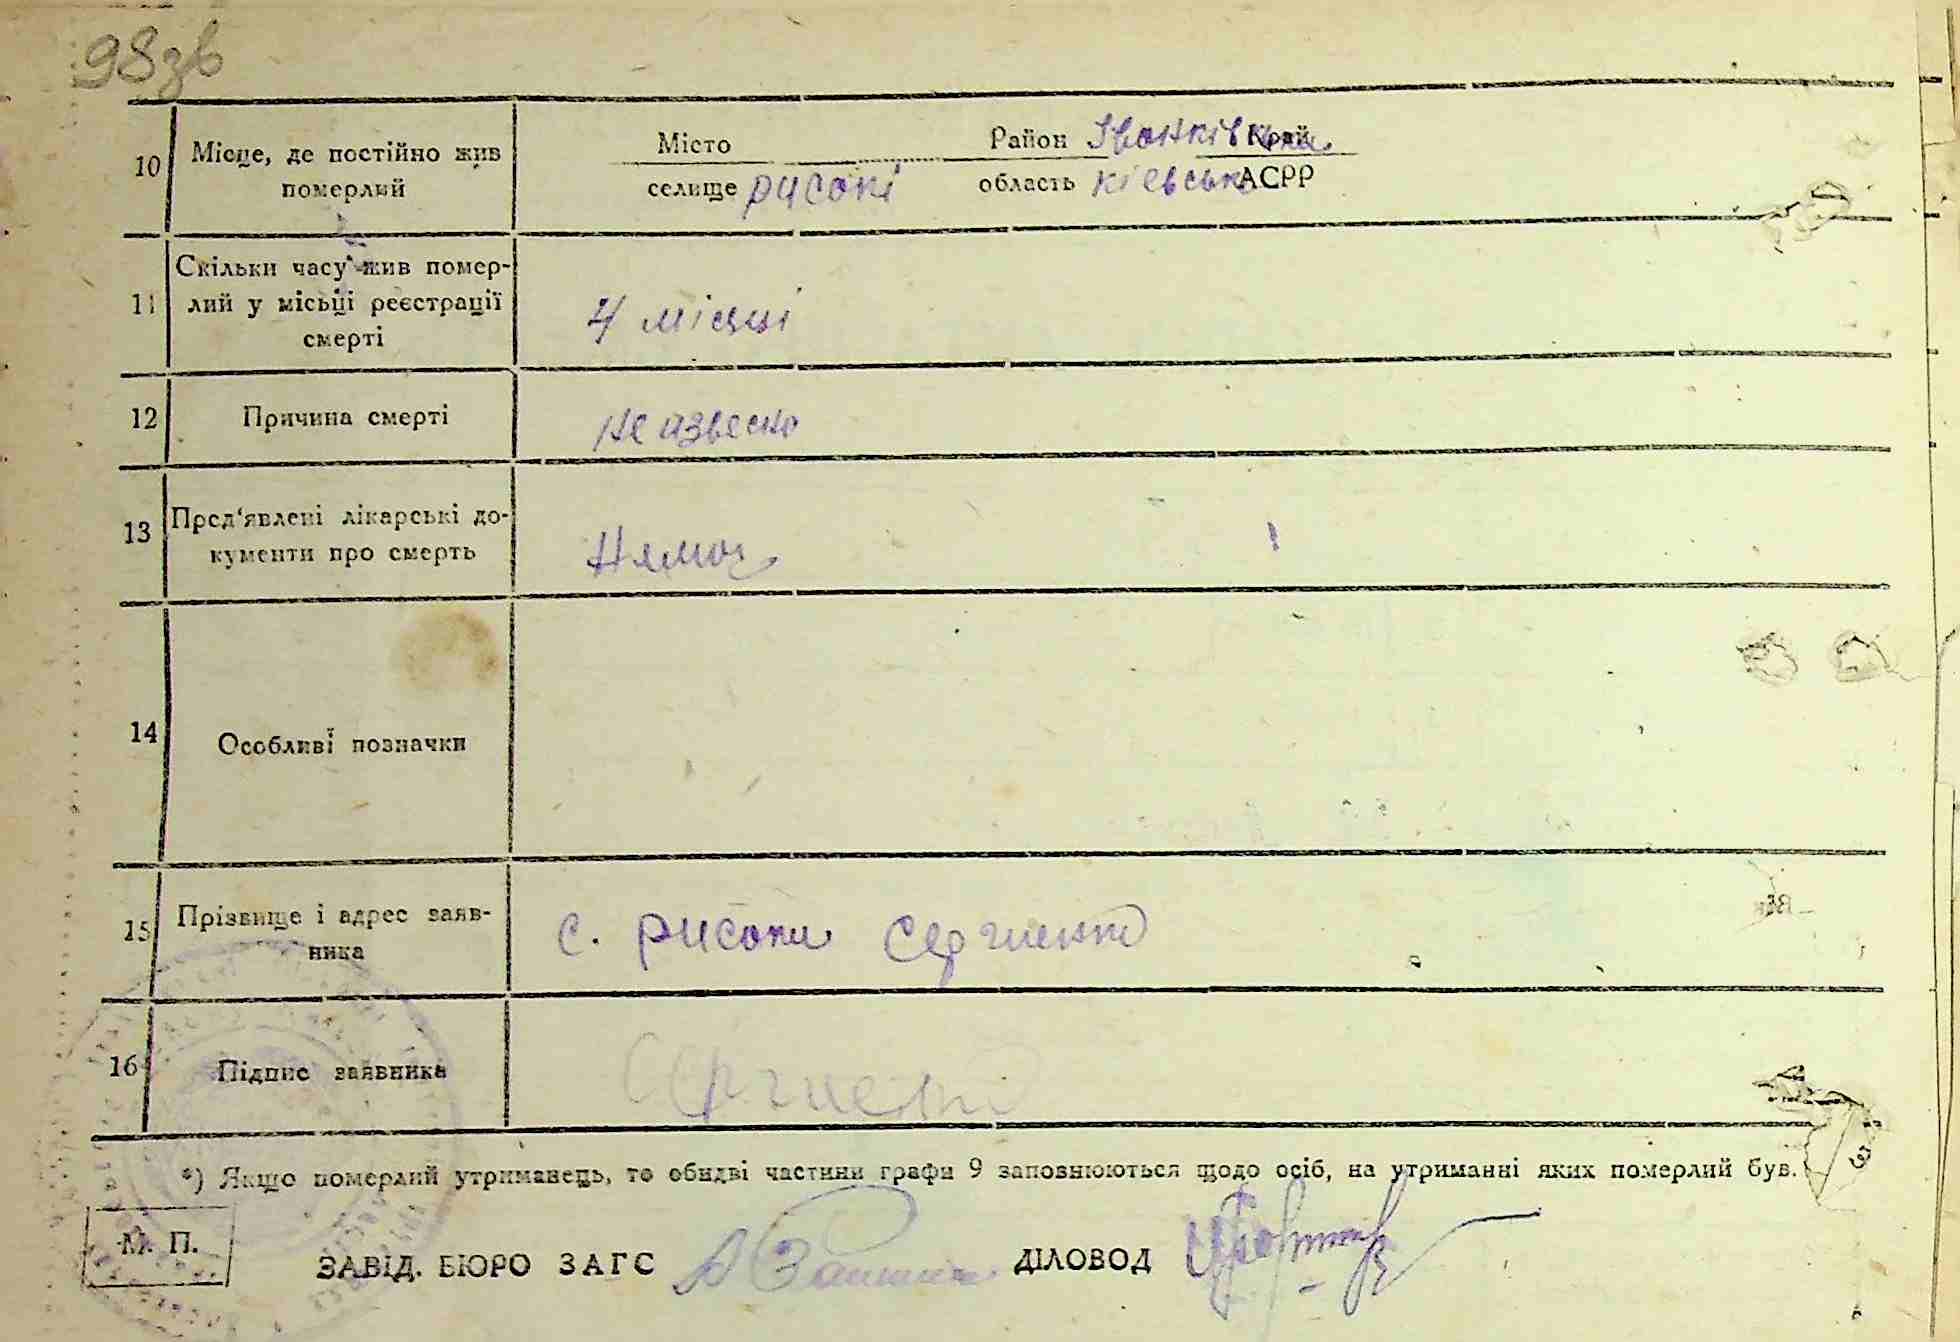 98зв
10 Місце, де постійно жив Місто Район Іванківська Край
померлий селище рисокі область кіевська АСРР
Скільки часу жив помер-
11 лий у місьці реєстрації 4 місяці
смерті
12 Причина смерті не азвесно
13 Пред'явлені лікарські до-
кументи про смерть Нямає
14 Особливі позначки
15 Прізвище і адрес заяв- с. рисоки Сергиенко
ника
16 Підпис заявника Сергиенко
*) Якщо померлий утриманець, то обидві частини графи 9 заповнюються щодо осіб, на утриманні яких померлий був.
М. П.
ЗАВІД. БЮРО ЗАГС ДІЛОВОД